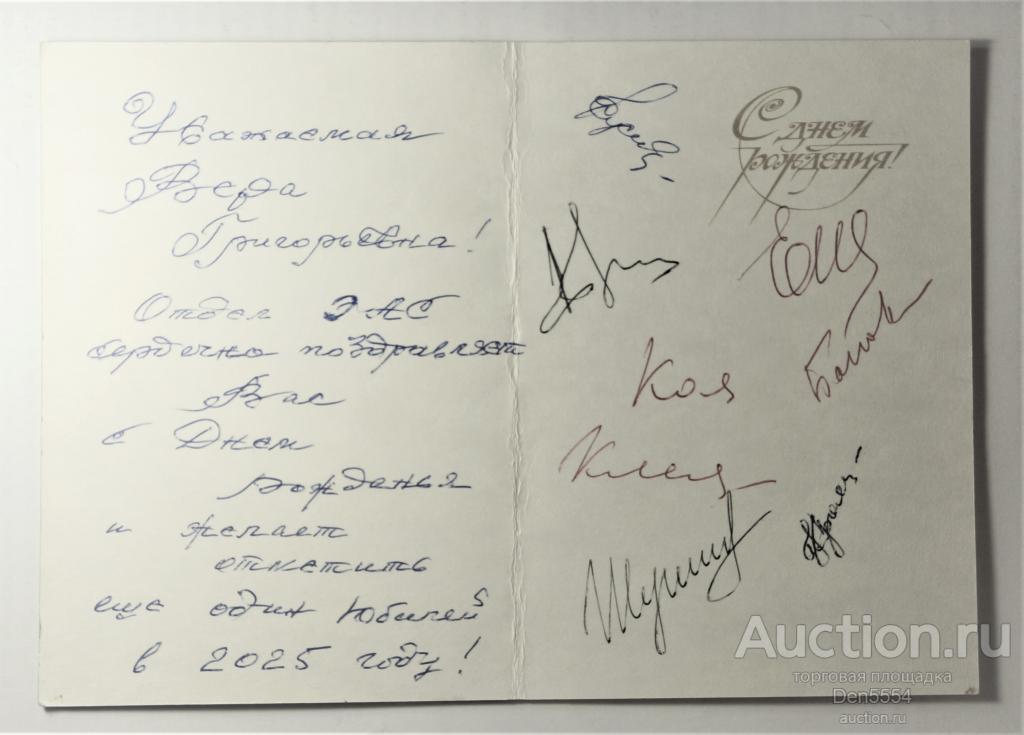 Уважаемая
Вера
Григорьевна!
Отдел ЭАС
сердечно поздравляет
Вас
с Днем
рожденья
и желает
отметить
еще один Юбилей
в 2025 году!
С днем
рождения!
Коля
Auction.ru
торговая площадка
Den5554
auction.ru